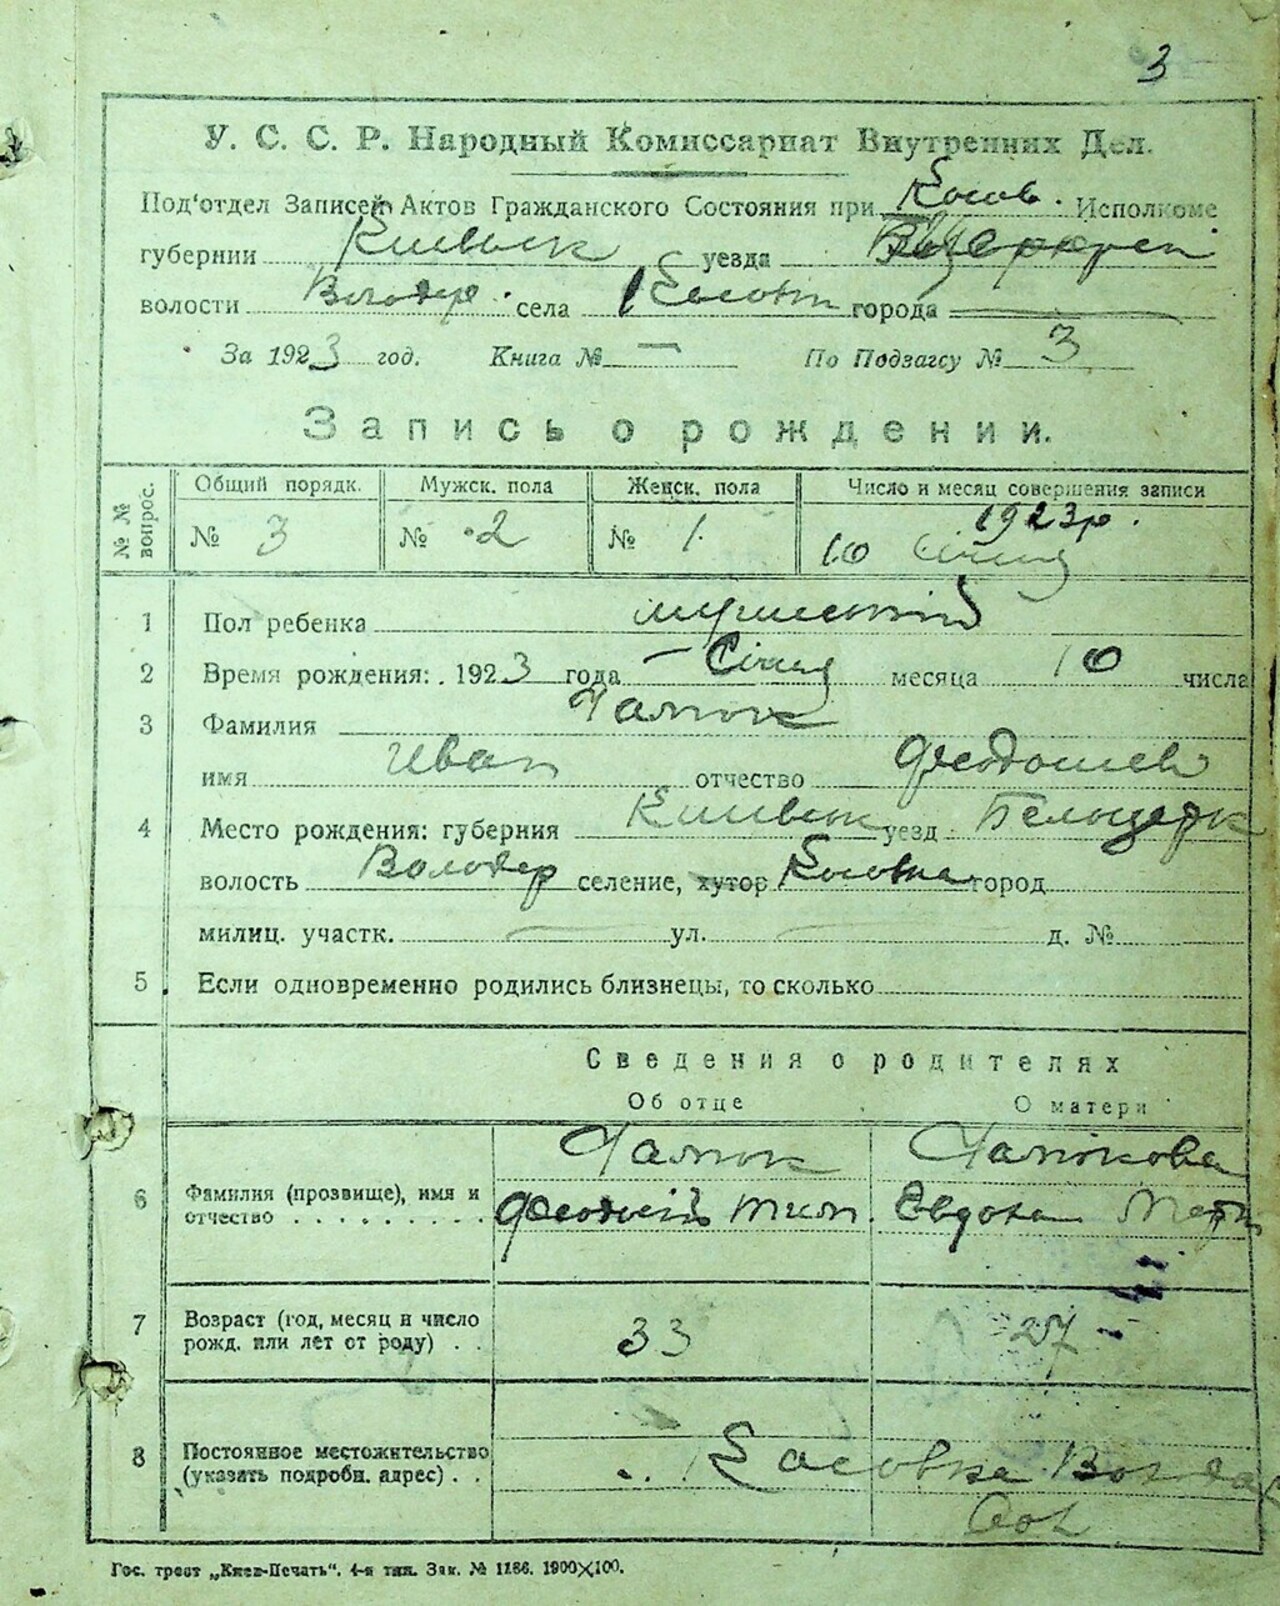 3
У. С. С. Р. Народный Комиссариат Внутренних Дел.
Под'отдел Записей Актов Гражданского Состояния при Косов. Исполкоме
губернии Киевск уезда
волости Володар. села города
За 1923 год. Книга № — По Подзагсу № 3
Запись о рождении.
№ № вопрос. Общий порядк. Мужск. пола Женск. пола Число и месяц совершения записи
1923р.
№ 3 № 2 № 1 10 Січня
1 Пол ребенка
2 Время рождения: 1923 года Січня месяца 10 числа
3 Фамилия
имя Иван отчество Феодосиев
4 Место рождения: губерния Киевск уезд Белоцерк
волость Володар селение, хутор Косовка город
милиц. участк. — ул. — д. №
5 Если одновременно родились близнецы, то сколько
Сведения о родителях
Об отце О матери
6 Фамилия (прозвище), имя и отчество
Феодосий Тим. Евдокия
7 Возраст (год, месяц и число рожд. или лет от роду) . . 33 27
8 Постоянное местожительство (указать подробн. адрес) . . Косовка Володар
Гос. трест „Киев-Печать“. 4-я тип. Зак. № 1186. 1900×100.